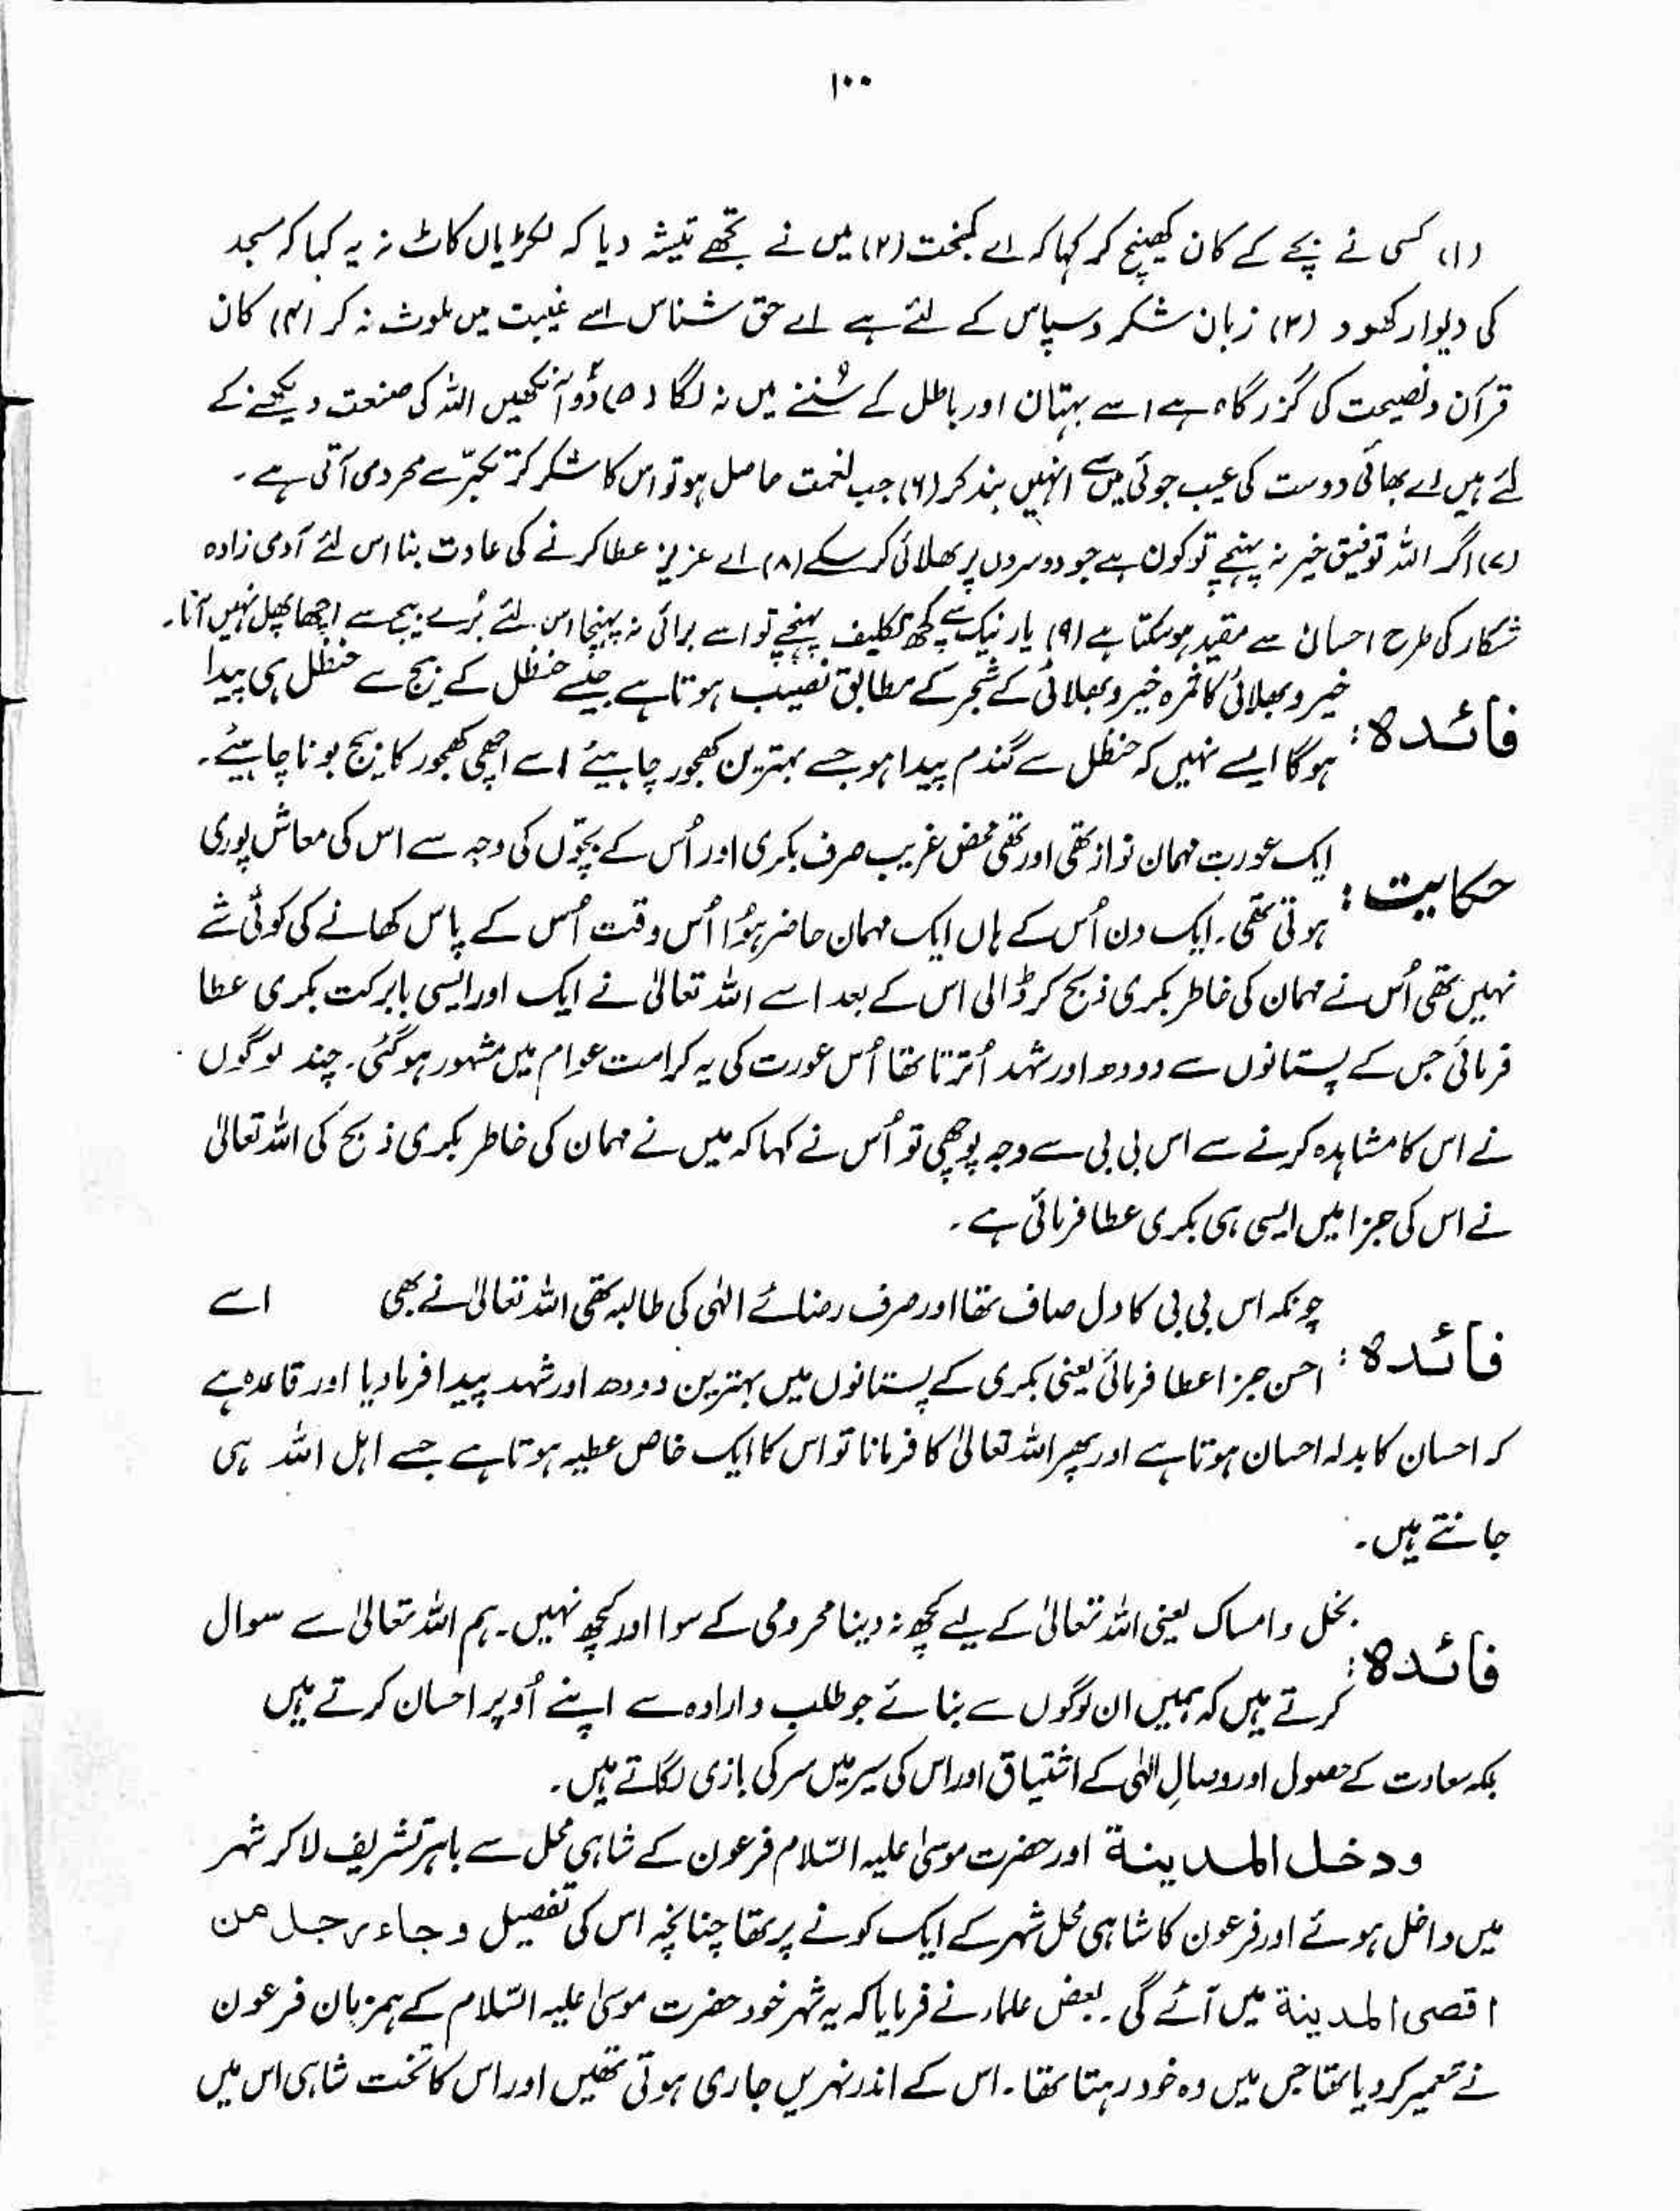 ۱۰۰
(۱) کسی نے بچے کے کان کھینچ کر کہا کہ اے کمبخت (۲) میں نے تجھے تیشہ دیا کہ لکڑیاں کاٹ نہ یہ کہا کہ مسجد
کی دیوار کھود (۳) زبان شکر و سپاس کے لئے ہے اے حق شناس اسے غیبت میں ملوث نہ کر (۴) کان
قرآن و نصیحت کی گزرگاہ ہے اسے بہتان اور باطل کے سُننے میں نہ لگا (۵) دو آنکھیں اللہ کی صنعت دیکھنے کے
لئے ہیں اے بھائی دوست کی عیب جوئی میں سے انہیں بند کر (۶) جب نعمت حاصل ہو تو اس کا شکر کر تکبّر سے محرومی آتی ہے۔
(۷) اگر اللہ توفیق خیر نہ پہنچے تو کون ہے جو دوسروں پر بھلائی کر سکے (۸) اے عزیز عطا کرنے کی عادت بنا اس لئے آدمی زادہ
شکار کی طرح احسان سے مقید ہوسکتا ہے (۹) یار نیک سے کچھ تکلیف پہنچے تو اسے برائی نہ پہنچا اس لئے بُرے بیج سے اچھا پھل نہیں آتا۔
فائدہ: خیر و بھلائی کا ثمرہ خیر و بھلائی کے شجر کے مطابق نصیب ہوتا ہے جیسے حنظل کے بیج سے حنظل ہی پیدا
ہوگا ایسے نہیں کہ حنظل سے گندم پیدا ہو جسے بہترین کھجور چاہیئے اسے اچھی کھجور کا بیج بونا چاہیئے۔
حکایت: ایک عورت مہمان نواز تھی اور تھی محض غریب صرف بکری اور اُس کے بچّوں کی وجہ سے اس کی معاش پوری
ہوتی تھی۔ ایک دن اُس کے ہاں ایک مہمان حاضر ہُوا اُس وقت اُس کے پاس کھانے کی کوئی شے
نہیں تھی اُس نے مہمان کی خاطر بکری ذبح کر ڈالی اس کے بعد اسے اللہ تعالیٰ نے ایک اور ایسی بابرکت بکری عطا
فرمائی جس کے پستانوں سے دودھ اور شہد اُترتا تھا اُس عورت کی یہ کرامت عوام میں مشہور ہوگئی۔ چند لوگوں
نے اس کا مشاہدہ کرنے سے اس بی بی سے وجہ پوچھی تو اُس نے کہا کہ میں نے مہمان کی خاطر بکری ذبح کی اللہ تعالیٰ
نے اس کی جزا میں ایسی ہی بکری عطا فرمائی ہے۔
فائدہ: چونکہ اس بی بی کا دل صاف تھا اور صرف رضائے الٰہی کی طالبہ تھی اللہ تعالیٰ نے بھی اسے
احسن جزا عطا فرمائی یعنی بکری کے پستانوں میں بہترین دودھ اور شہد پیدا فرما دیا اور قاعدہ ہے
کہ احسان کا بدلہ احسان ہوتا ہے اور پھر اللہ تعالیٰ کا فرمانا تو اس کا ایک خاص عطیہ ہوتا ہے جسے اہل اللہ ہی
جانتے ہیں۔
فائدہ: بخل و امساک یعنی اللہ تعالیٰ کے لیے کچھ نہ دینا محرومی کے سوا اور کچھ نہیں۔ ہم اللہ تعالیٰ سے سوال
کرتے ہیں کہ ہمیں ان لوگوں سے بنائے جو طلب و ارادہ سے اپنے اُوپر احسان کرتے ہیں
بلکہ سعادت کے حصول اور وصالِ الٰہی کے اشتیاق اور اس کی سیر میں سر کی بازی لگاتے ہیں۔
ودخل المدینة اور حضرت موسیٰ علیہ السّلام فرعون کے شاہی محل سے باہر تشریف لا کر شہر
میں داخل ہوئے اور فرعون کا شاہی محل شہر کے ایک کونے پر تھا چنانچہ اس کی تفصیل وجاء رجل من
اقصی المدینة میں آئے گی۔ بعض علماء نے فرمایا کہ یہ شہر خود حضرت موسیٰ علیہ السّلام کے ہمزمان فرعون
نے تعمیر کر دیا تھا جس میں وہ خود رہتا تھا۔ اس کے اندر نہریں جاری ہوتی تھیں اور اس کا تخت شاہی اس میں